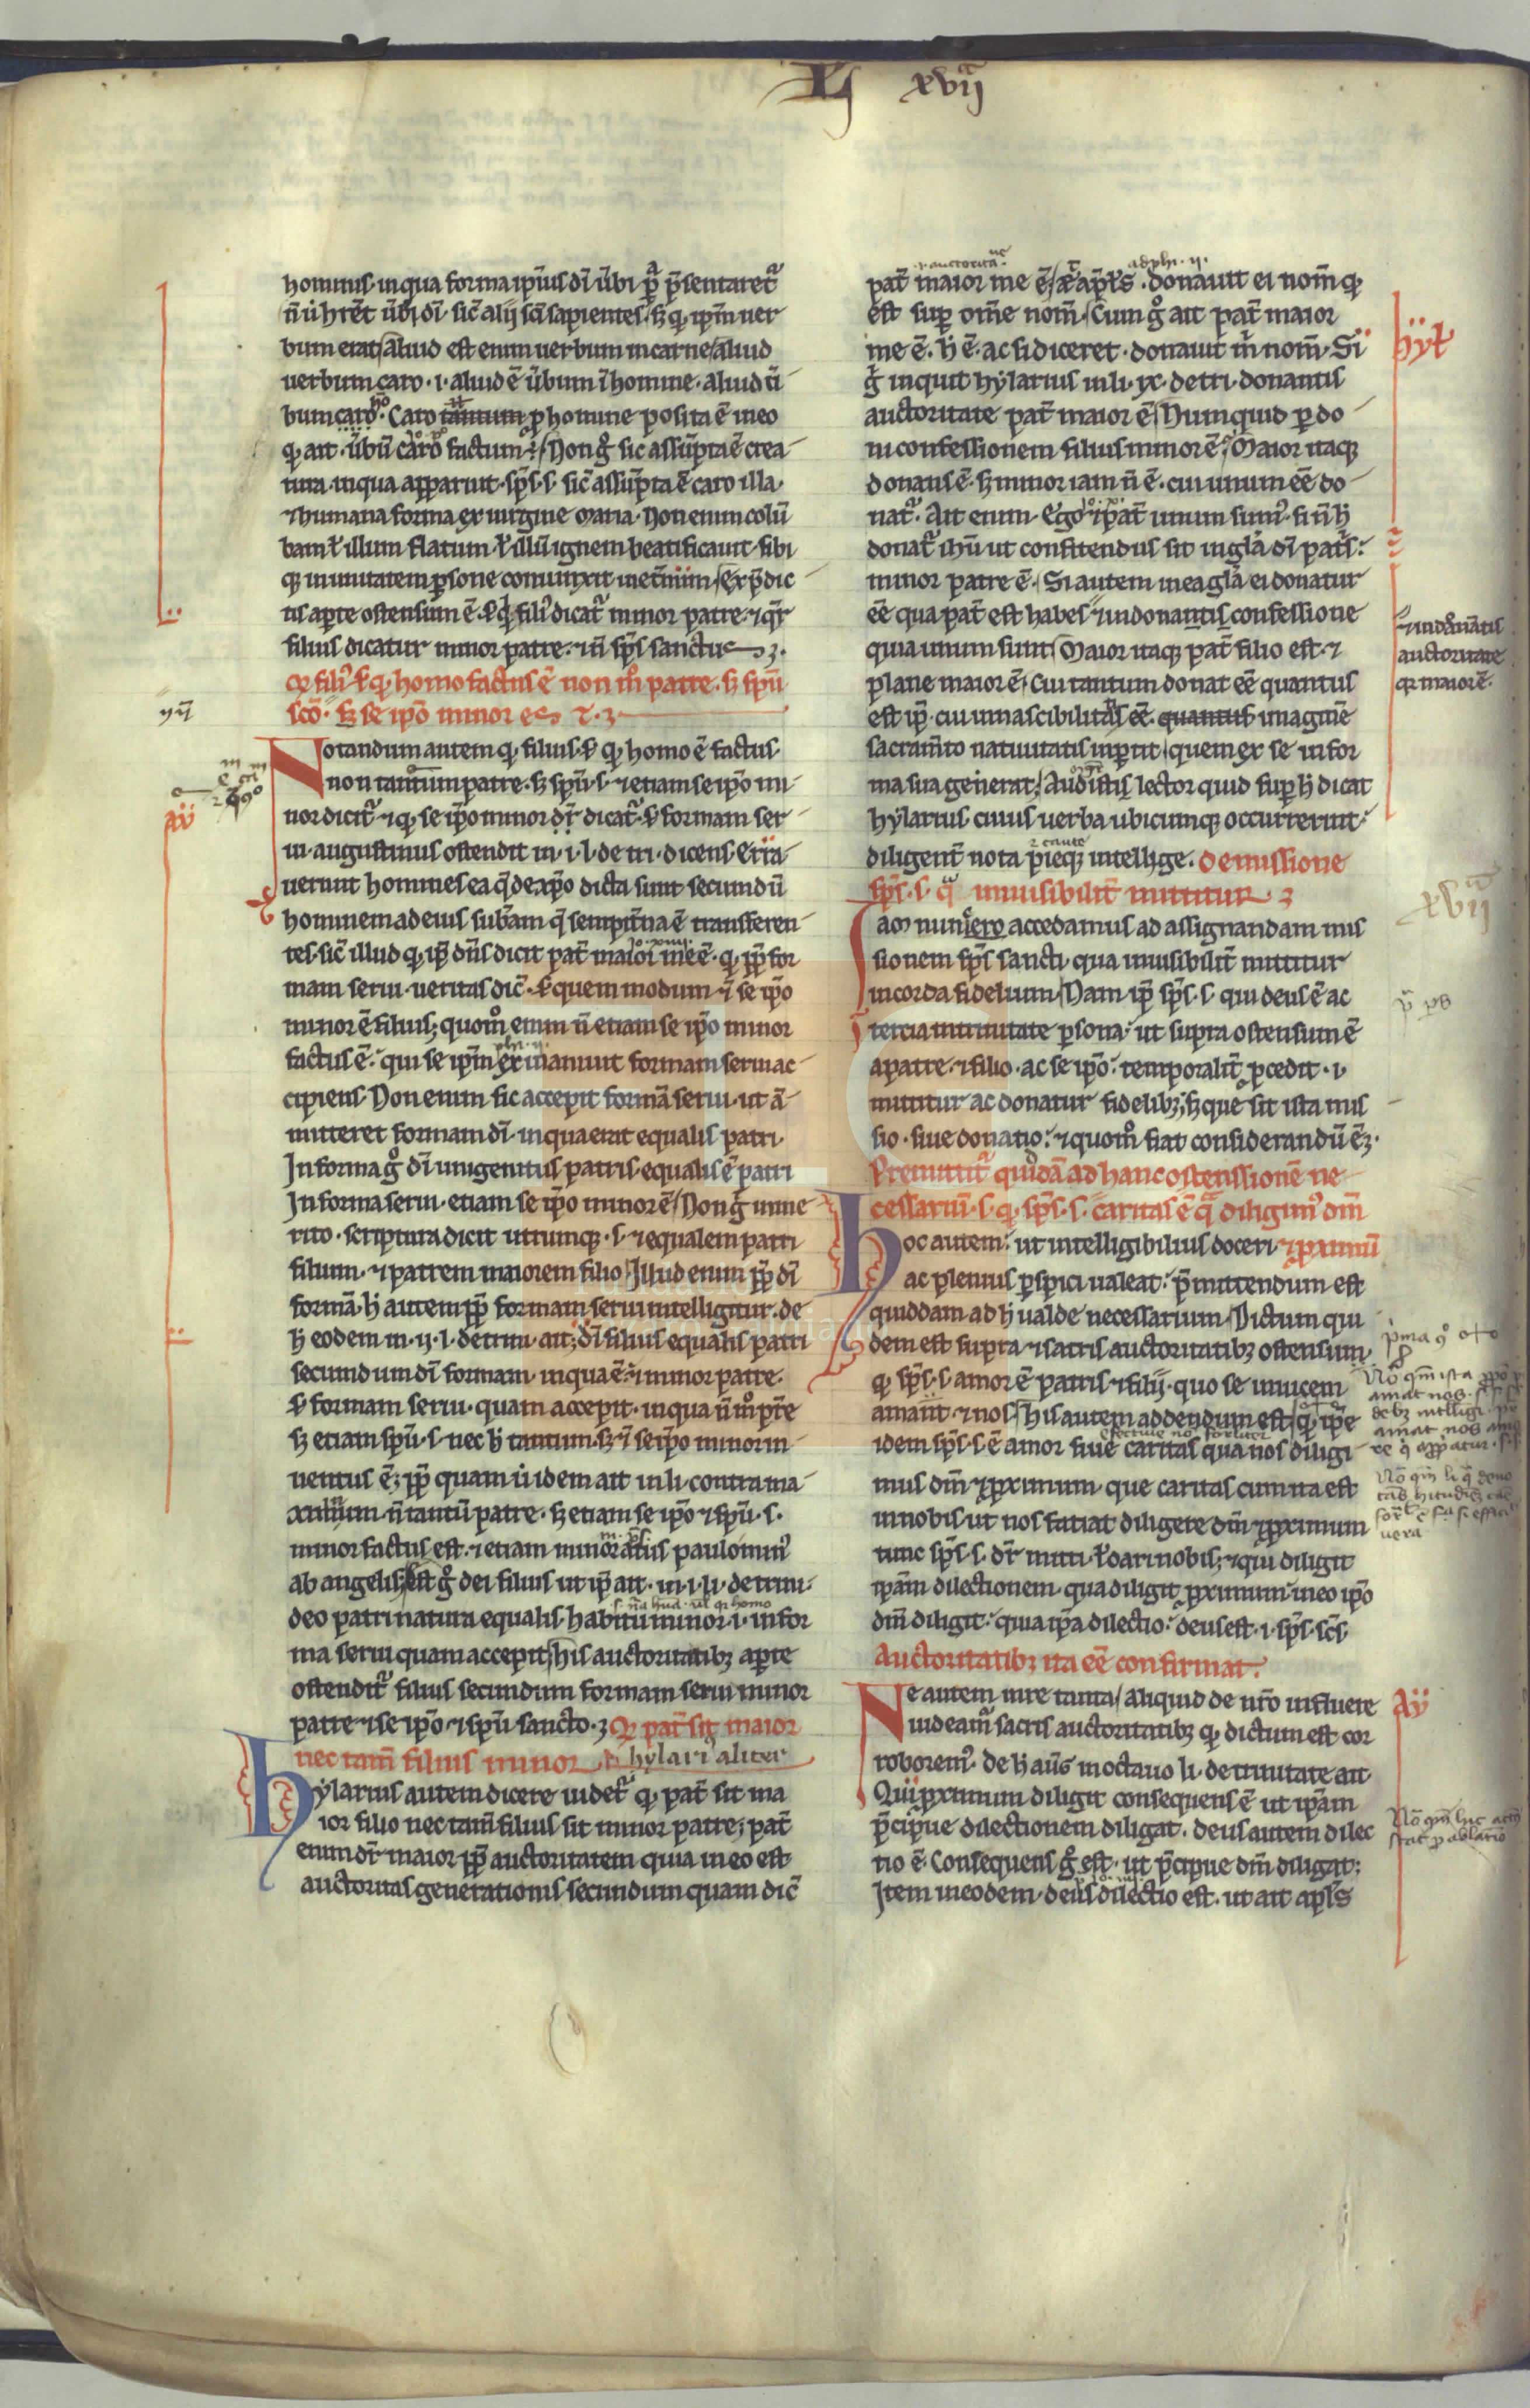 L xvij
hominis in qua forma ip̄ius dī ūbi p̄ p̄sentaret᷑
n̄ ū hr̄et ūbi dī sic̄ alij sc̄i sapientes ꝫ q̇ ip̄m uer
bum erat / aliud est enim uerbum in carne / aliud
uerbum caro · i · aliud ē ūbum ī homine · aliud ū
bum caro · Caro tantum p homine posita ē in eo
q̇ ait · ūbū caro factum ē / Non g̊ sic assūpta ē crea
tura · in qua apparuit · sp̄s · s · sic̄ assūpta ē caro illa ·
⁊ humana forma ex uirgine maria · Non enim colū
bam ł illum flatum · ł illū ignem beatificauit · sibi
q̇ in unitatem ꝑsone coniunxit in et̄num / Ex p̄dic
tis aꝑte ostensum ē · qd̄ fili᷒ dicat᷑ minor patre · ⁊ q̄r
filius dicatur minor patre · ⁊ n̄ sp̄s sanctus
q̇ fili᷒ q̇ homo factus ē non m̊ patre · ꝫ sp̄u
sc̄o · ꝫ se ip̄o minor
Notandum autem q̇ · filius · q̇ homo ē factus ·
non tantum patre · ꝫ sp̄u · s · ⁊ etiam se ip̄o mi
nor dicit᷑ · ⁊ q̇ · se ip̄o minor dr̄ dicat᷑ · formam ser
ui · augustinus ostendit in · i · l · de tri · dicens · Erra
uerunt homines ea q̄ de xp̄o dicta sunt secundū
hominem ad eius subam q̄ sempit̄na ē transferen
tes · sic̄ illud q̇ ip̄e dn̄s dicit pat̄ maior me ē · q̇ · pp̄ for
mam serui · ueritas dic̄ · quem modum · ⁊ se ip̄o
minor ē filius ; quom̊ enim n̄ etiam se ip̄o minor
factus ē · qui se ip̄m exinaniuit formam serui ac
cipiens · Non enim sic accepit formā serui · ut ā
mitteret formam dī · in qua erat equalis patri ·
In forma g̊ dī unigenitus patris equalis ē patri
In forma serui · etiam se ip̄o minor ē / Non g̊ inme
rito · scriptura dicit utrumque · s · ⁊ equalem patri
filium · ⁊ patrem maiorem filio / Illud enim pp̄ dī
formā · h̄ autem pp̄ formam serui intelligitur · de
h̄ eodem in · ij · l · de trini · ait ; dī filius equalis patri
secundum dī formam · in qua ē · ⁊ minor patre ·
formam serui · quam accepit · in qua n̄ m̊ pr̄e
ꝫ etiam sp̄u · s · nec h̄ tantum · ꝫ ⁊ se ip̄o minor in
uentus ē ; pp̄ quam ū idem ait in li · contra ma
ximum · n̄ tantū patre · ꝫ etiam se ip̄o ⁊ sp̄u · s ·
minor factus est · ⁊ etiam minoratus paulomin᷒
ab angelis / Est g̊ dei filius ut ip̄e ait · in · i · li · de trini ·
deo patri natura equalis · habitu minor · i · in for
ma serui quam accepit / his auctoritatibꝫ aꝑte
ostendit᷑ filius secundum formam serui minor
patre ⁊ se ip̄o ⁊ sp̄u sancto · q̇ pat̄ sit maior
nec tam̄ filius minor hylari᷒ aliter
hylarius autem dicere uidet᷑ q̇ pat̄ sit ma
ior filio nec tam̄ filius sit minor patre ; pat̄
enim dr̄ maior pp̄ auctoritatem quia in eo est
auctoritas generationis secundum quam dic̄
pat̄ maior me ē / ⁊ ap̄ls · donauit ei nom̄ q̇
est suꝑ om̄e nom̄ / Cum g̊ ait pat̄ maior
me ē · h̄ ē · ac si diceret · donauit m̄ nom̄ · Si
g̊ inquit hylarius in li · ix · de tri · donantis
auctoritate pat̄ maior ē / Numquid ꝑ do
ni confessionem filius minor ē / Maior itaque
donans ē · ꝫ minor iam n̄ ē · cui unum eē do
nat᷑ · Ait enim · Ego ⁊ pat̄ unum sum᷒ · si n̄ h̄
donat᷑ ihū ut confitendus sit in gla dī patris
minor patre ē · Si autem in ea gla ei donatur
eē qua pat̄ est habes ⁊ in donantis confessione
quia unum sunt / Maior itaque pat̄ filio est · ⁊
plane maior ē · cui tantum donat eē quantus
est ip̄e · cui innascibilitatis eē · quantus imaginē
sacram̄to natiuitatis inꝑtit / quem ex se in for
ma sua generat / Audistis lector quid suꝑ h̄ dicat
hylarius cuius uerba ubicumque occurrerint
diligent̄ nota pieque intellige · De missione
sp̄s · s · q̄ inuisibilit̄ mittitur
Iam nunc uero accedamus ad assignandam mis
sionem sp̄s sancti qua inuisibilit̄ mittitur
in corda fidelium / Nam ip̄e sp̄s · s · qui deus ē ac
tercia in trinitate ꝑsona · ut supra ostensum ē
a patre · ⁊ filio · ac se ip̄o · temporalit̄ ꝓcedit · i ·
mittitur ac donatur fidelibꝫ ; ꝫ que sit ista mis
sio · siue donatio · ⁊ quom̊ fiat considerandū ē ·
Premittit᷑ quiddā ad hanc ostenssionē ne
cessariū · s · q̇ · sp̄s · s · caritas ē q̄ diligim᷒ dm̄
hoc autem · ut intelligibilius doceri · ⁊ proximū
ac plenius ꝑspici ualeat · p̄mittendum est
quiddam ad h̄ ualde necessarium / Dictum qui
dem est supra ⁊ sacris auctoritatibꝫ ostensum
q̇ sp̄s · s · amor ē patris ⁊ filij · quo se inuicem
amant ⁊ nos / his autem addendum est / q̇ · ip̄e
idem sp̄s · s · ē amor siue caritas qua nos diligi
mus dm̄ ⁊ proximum · que caritas cum ita est
in nobis ut nos faciat diligere dm̄ ⁊ proximum
tunc sp̄s · s · dr̄ mitti · ł dari nobis ; ⁊ qui diligit
ip̄am dilectionem · qua diligit proximum · in eo ip̄o
dm̄ diligit · quia ip̄a dilectio · deus est · i · sp̄s · sc̄s
Auctoritatibꝫ ita eē confirmat ·
Ne autem in re tanta / aliquid de nr̄o influere
uideam᷑ sacris auctoritatibꝫ q̇ dictum est cor
roborem᷒ · de h̄ aug᷒ in octauo li · de trinitate ait ·
Qui proximum diligit consequens ē ut ip̄am
p̄cipue dilectionem diligat · deus autem dilec
tio ē · Consequens g̊ est · ut p̄cipue dm̄ diligat ·
Item in eodem · deus dilectio est · ut ait ap̄ls
hyl̄
⁊ in donātis
auctoritate
q̇ maior ē
xvij